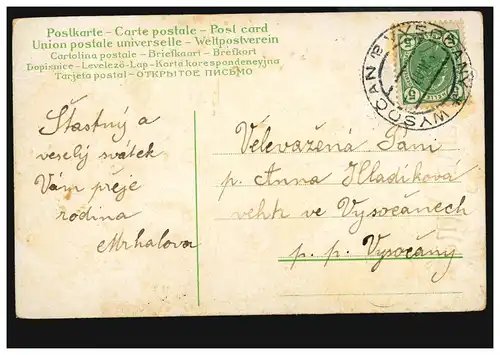 Postkarte - Carte postale - Post card
Union postale universelle - Weltpostverein
Cartolina postale - Briefkaart - Brefkort
Dopisnice - Levelező-Lap - Karta korespondencyjna
Tarjeta postal - ОТКРЫТОЕ ПИСЬМО
WYSOČAN VYSOČANY WYSOČAN
5 5
Šťastný a
veselý svátek
Vám přeje
rodina
Mrhalova
Velevažená Paní
p. Anna Hladíková
ve Vysočanech
p. p. Vysočany